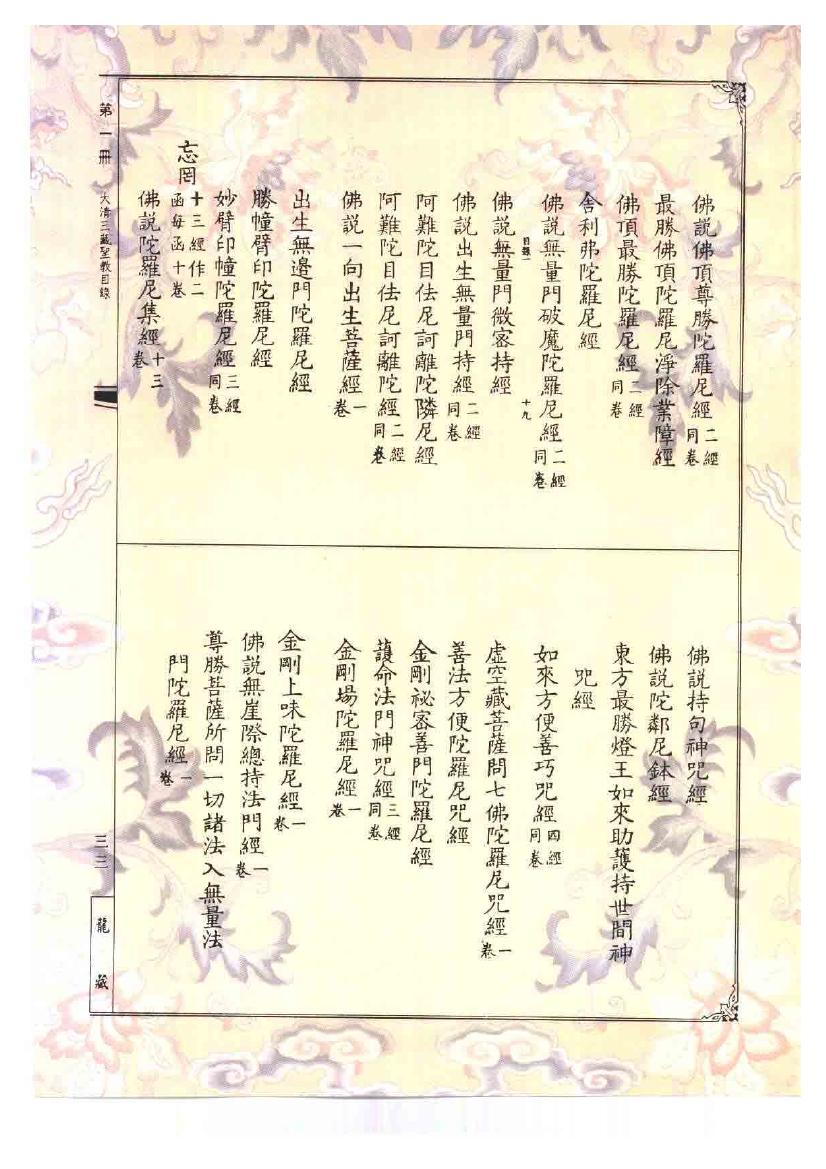 佛說佛頂尊勝陀羅尼經二經同卷
最勝佛頂陀羅尼淨除業障經
佛頂最勝陀羅尼經二經同卷
舍利弗陀羅尼經
佛說無量門破魔陀羅尼經二經同卷
目錄一 十九
佛說無量門微密持經
佛說出生無量門持經二經同卷
阿難陀目佉尼訶離陀隣尼經
阿難陀目佉尼訶離陀經二經同卷
佛說一向出生菩薩經一卷
出生無邊門陀羅尼經
勝幢臂印陀羅尼經
妙臂印幢陀羅尼經三經同卷
忘罔十三經作二函每函十卷
佛說陀羅尼集經十三卷
佛說持句神咒經
佛說陀鄰尼鉢經
東方最勝燈王如來助護持世間神
咒經
如來方便善巧咒經四經同卷
虛空藏菩薩問七佛陀羅尼咒經一卷
善法方便陀羅尼咒經
金剛祕密善門陀羅尼經
護命法門神咒經三經同卷
金剛場陀羅尼經一卷
金剛上味陀羅尼經一卷
佛說無崖際總持法門經一卷
尊勝菩薩所問一切諸法入無量法
門陀羅尼經一卷
第一冊 大清三藏聖教目錄
三三
龍藏